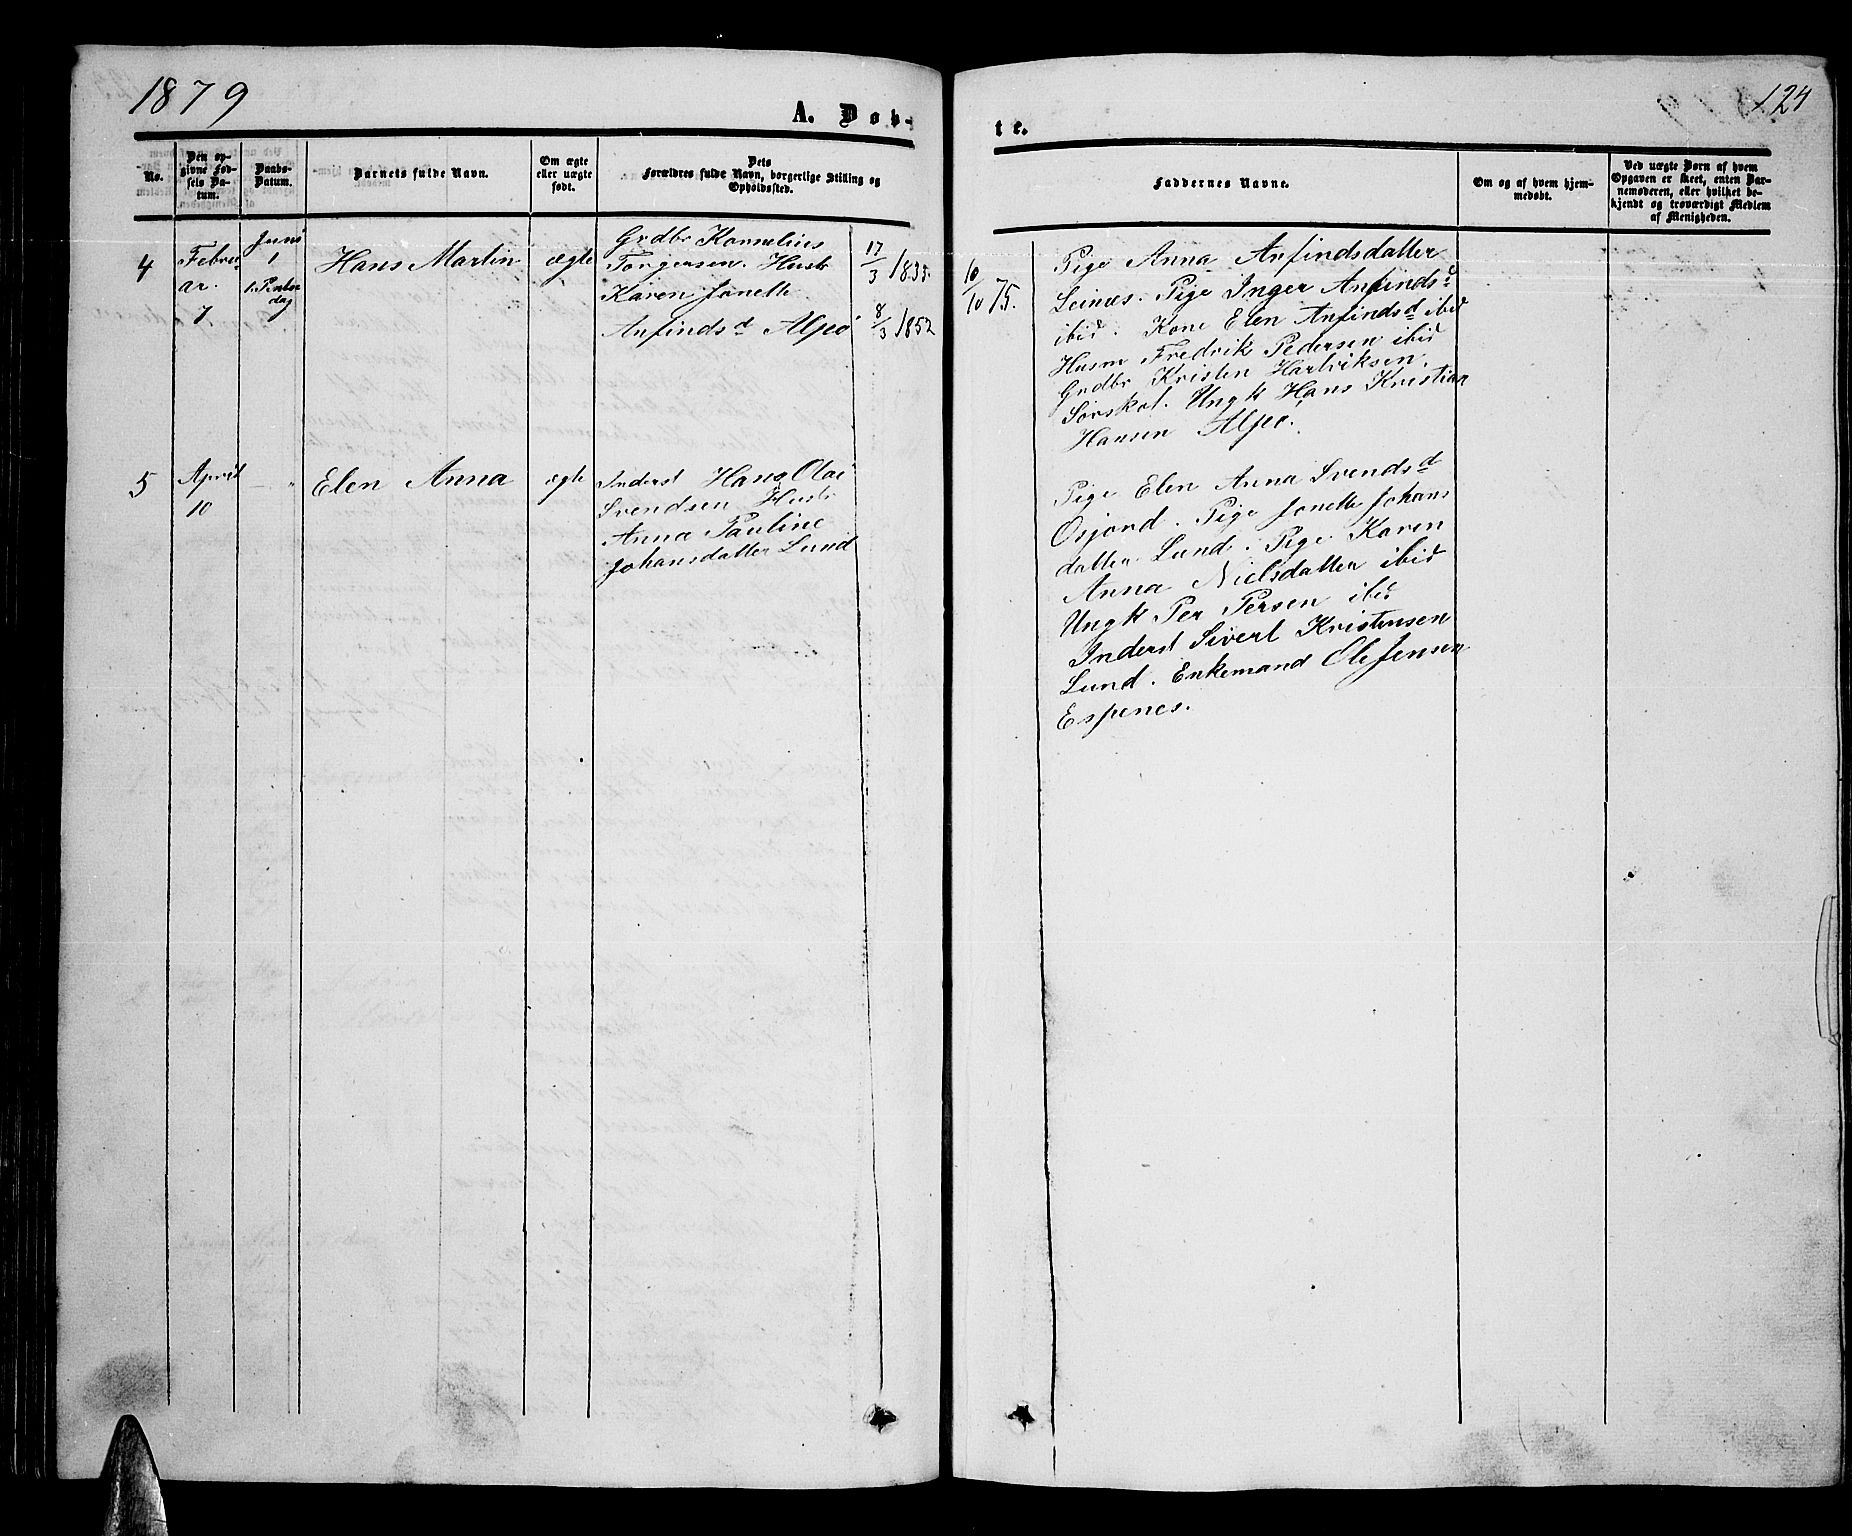 1879
124
A. Døb-
te.
No.
Den op-
givne Fød-
sels Da-
tum.
Daabs-
Datum.
Barnets fulde Navn.
Om ægte
eller uægte
født.
Dets
Forældres fulde Navn, borgerlige Stilling og
Opholdssted.
Faddernes Navne.
Om og af hvem hjem-
medøbt.
Ved uægte Børn af hvem
Opgaven er skeet, enten Bar-
nemoderen, eller hvilket be-
kjendt og troværdigt Medlem
af Menigheden.
4
Febru-
ar.
7
Juni
1
1. Pintse-
dag
Hans Martin
ægte
Grdbr Kornelius
Torgersen. Hustr
Karen Jonette
Anfindsd Alpeö
17/3 1835.
8/3 1852
10/10 75.
Pige Anna Anfindsdatter
Leinæs. Pige Inger Anfindsd
ibid. Kone Elen Anfindsd ibid
Husm Fredrik Pedersen ibid
Grdbr Kristen Hartviksen
Sörskot. Ungk Hans Kristian
Hansen Alpeö.
5
April
10
Elen Anna
ægte
Inderst Hans Olai
Svendsen Hustr
Anna Pauline
Johansdatter Lund
Pige Elen Anna Svendsd
Osjord. Pige Jonette Johans
datter Lund. Pige Karen
Anna Nielsdatter ibid
Ungk Per Persen ibid
Inderst Sivert Kristensen
Lund. Enkemand Ole Jensen
Espenes.